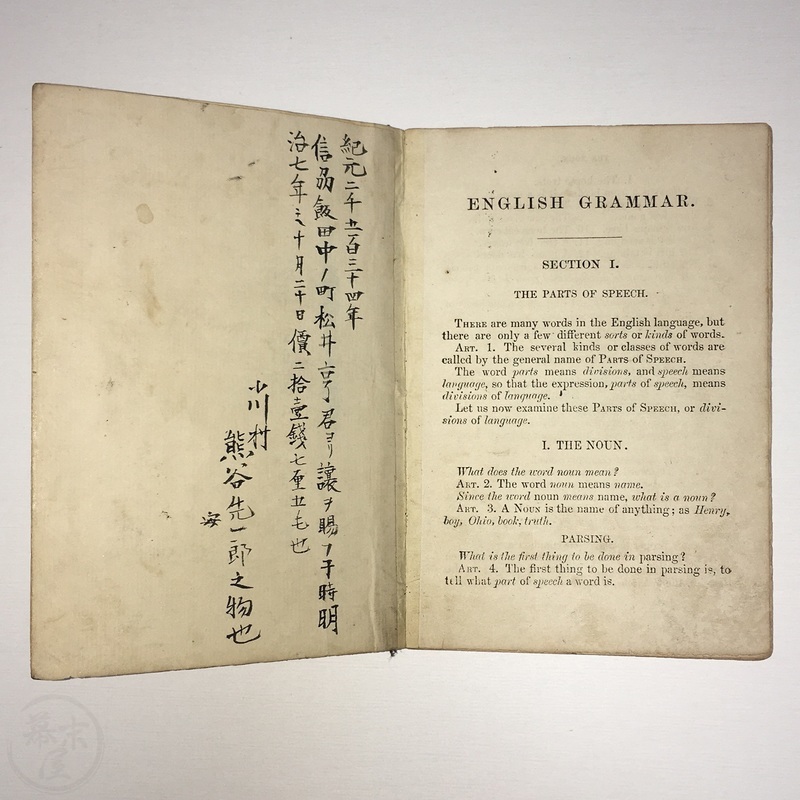 紀元二千五百三十四年
信刕飯田中ノ町松井君ヨリ讓ヲ賜フ于時明
治七年之十月二十日價二拾壹錢七厘五毛也
小川村
熊谷先一郎之物也
安
ENGLISH GRAMMAR.
SECTION I.
THE PARTS OF SPEECH.
THERE are many words in the English language, but
there are only a few different sorts or kinds of words.
ART. 1. The several kinds or classes of words are
called by the general name of PARTS OF SPEECH.
The word parts means divisions, and speech means
language, so that the expression, parts of speech, means
divisions of language.
Let us now examine these PARTS OF SPEECH, or divi-
sions of language.
I. THE NOUN.
What does the word noun mean?
ART. 2. The word noun means name.
Since the word noun means name, what is a noun?
ART. 3. A NOUN is the name of anything; as Henry,
boy, Ohio, book, truth.
PARSING.
What is the first thing to be done in parsing?
ART. 4. The first thing to be done in parsing is, to
tell what part of speech a word is.
幕末屋